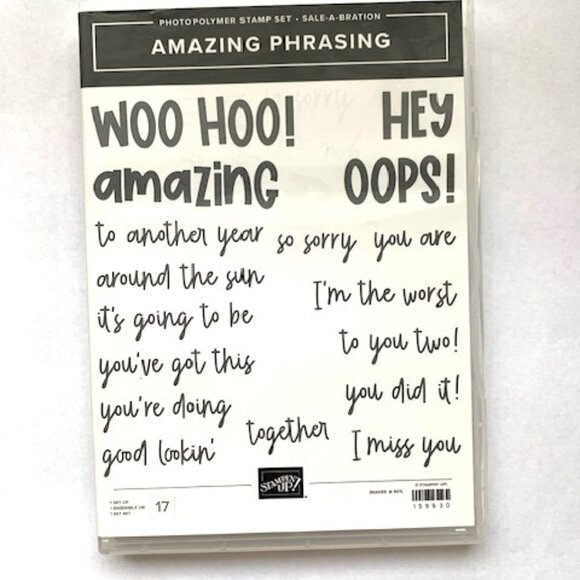 PHOTOPOLYMER STAMP SET • SALE-A-BRATION
AMAZING PHRASING
WOO HOO! HEY
amazing OOPS!
to another year so sorry you are
around the sun
I'm the worst
it's going to be
to you two!
you've got this
you did it!
you're doing
together
good lookin' I miss you
STAMPIN' UP!
© STAMPIN' UP!
1 SET OF
17
IMAGES @ 60%
159930